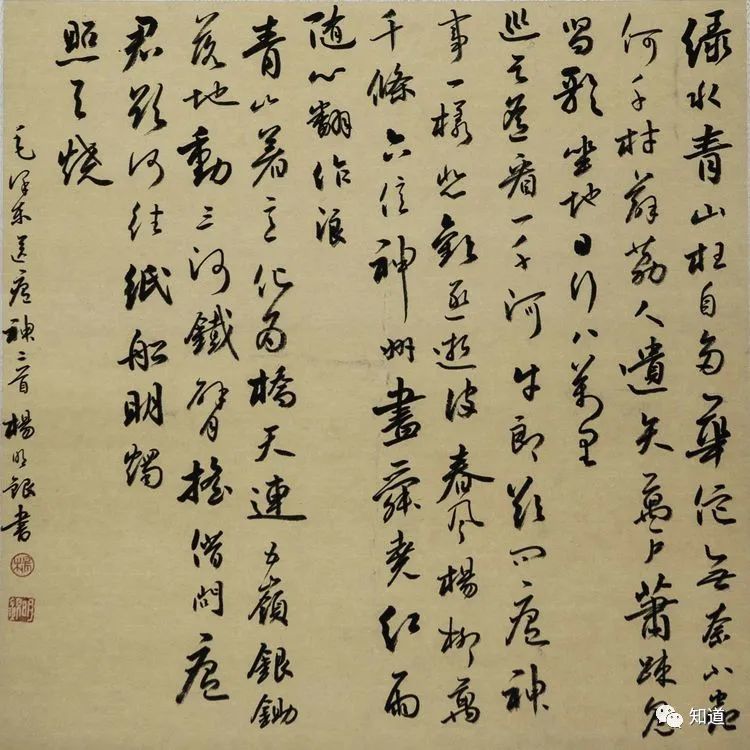 綠水青山枉自多華佗無奈小蟲
何千村薜荔人遺矢萬戶蕭疎鬼
唱歌坐地日行八萬里
巡天遙看一千河牛郎欲問瘟神
事一樣悲歡逐逝波春風楊柳萬
千條六億神州盡舜堯紅雨
随心翻作浪
青山着意化為橋天連五嶺銀鋤
落地動三河鐵臂搖借問瘟
君欲何往紙船明燭
照天燒
毛澤東送瘟神二首楊明銀書
知道